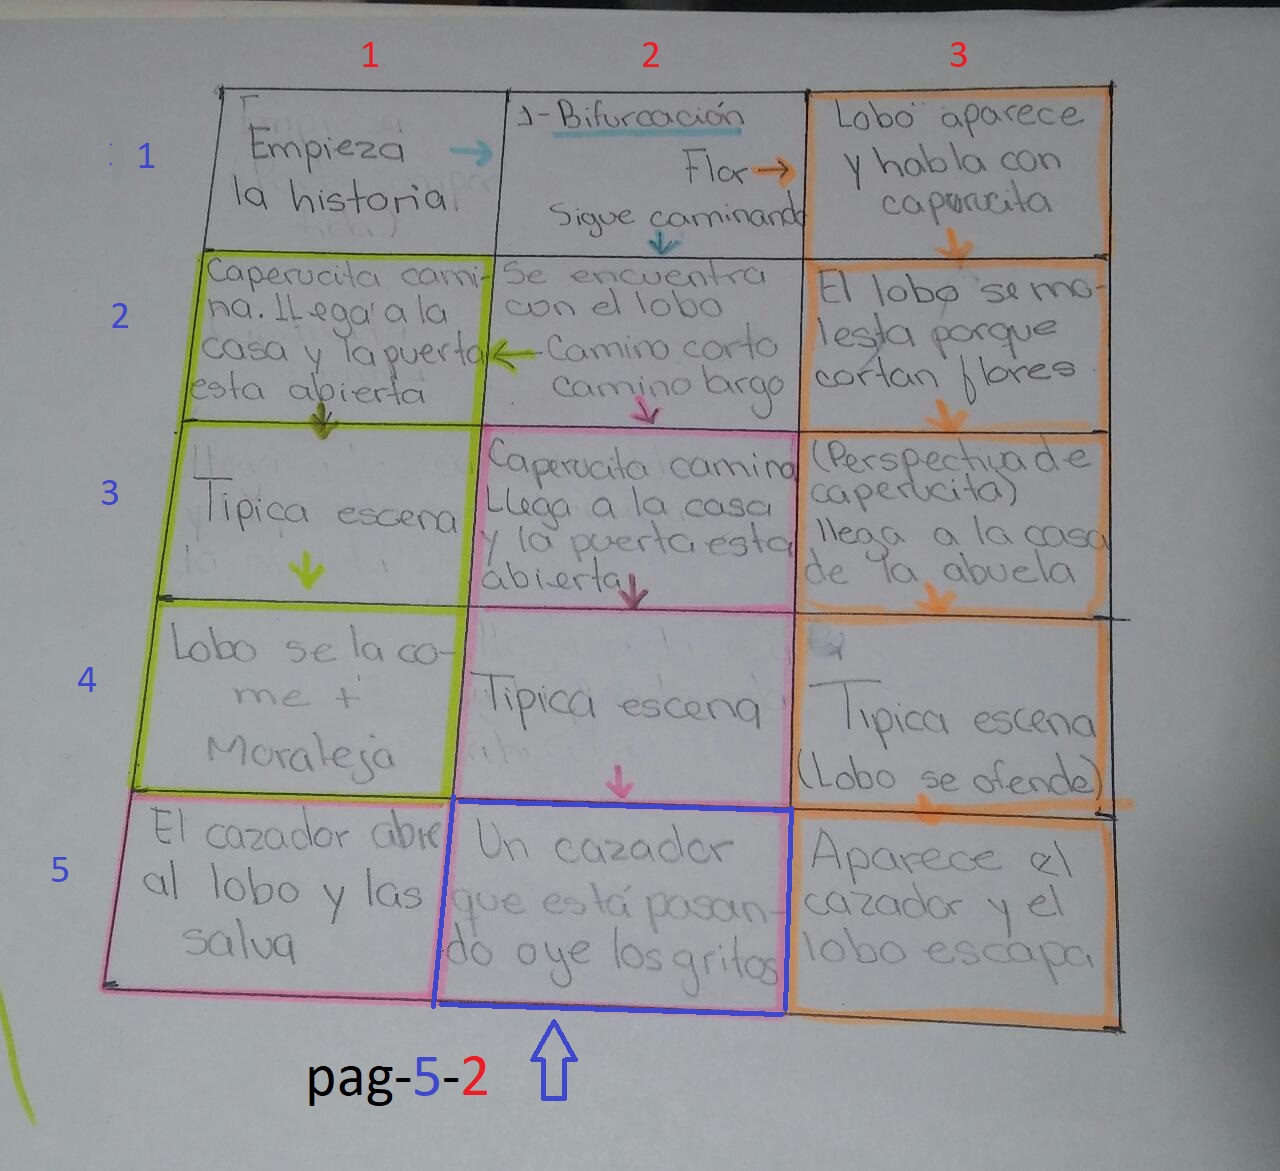 1
2
3
1
Empieza →
la historia.
1- Bifurcación
Flor →
Sigue caminando
Lobo aparece
y habla con
caperucita
2
Caperucita cami-
na. LLega a la
casa y la puerta
esta abierta
Se encuentra
con el lobo
← Camino corto
camino largo
El lobo se mo-
lesta porque
cortan flores
3
Tipica escena
Caperucita camina
LLega a la casa
y la puerta esta
abierta
(Perspectiva de
caperucita)
llega a la casa
de la abuela
4
Lobo se la co-
me +
Moraleja
Tipica escena
Tipica escena
(Lobo se ofende)
5
El cazador abre
al lobo y las
salva
Un cazador
que está pasan-
do oye los gritos
Aparece el
cazador y el
lobo escapa
pag-5-2